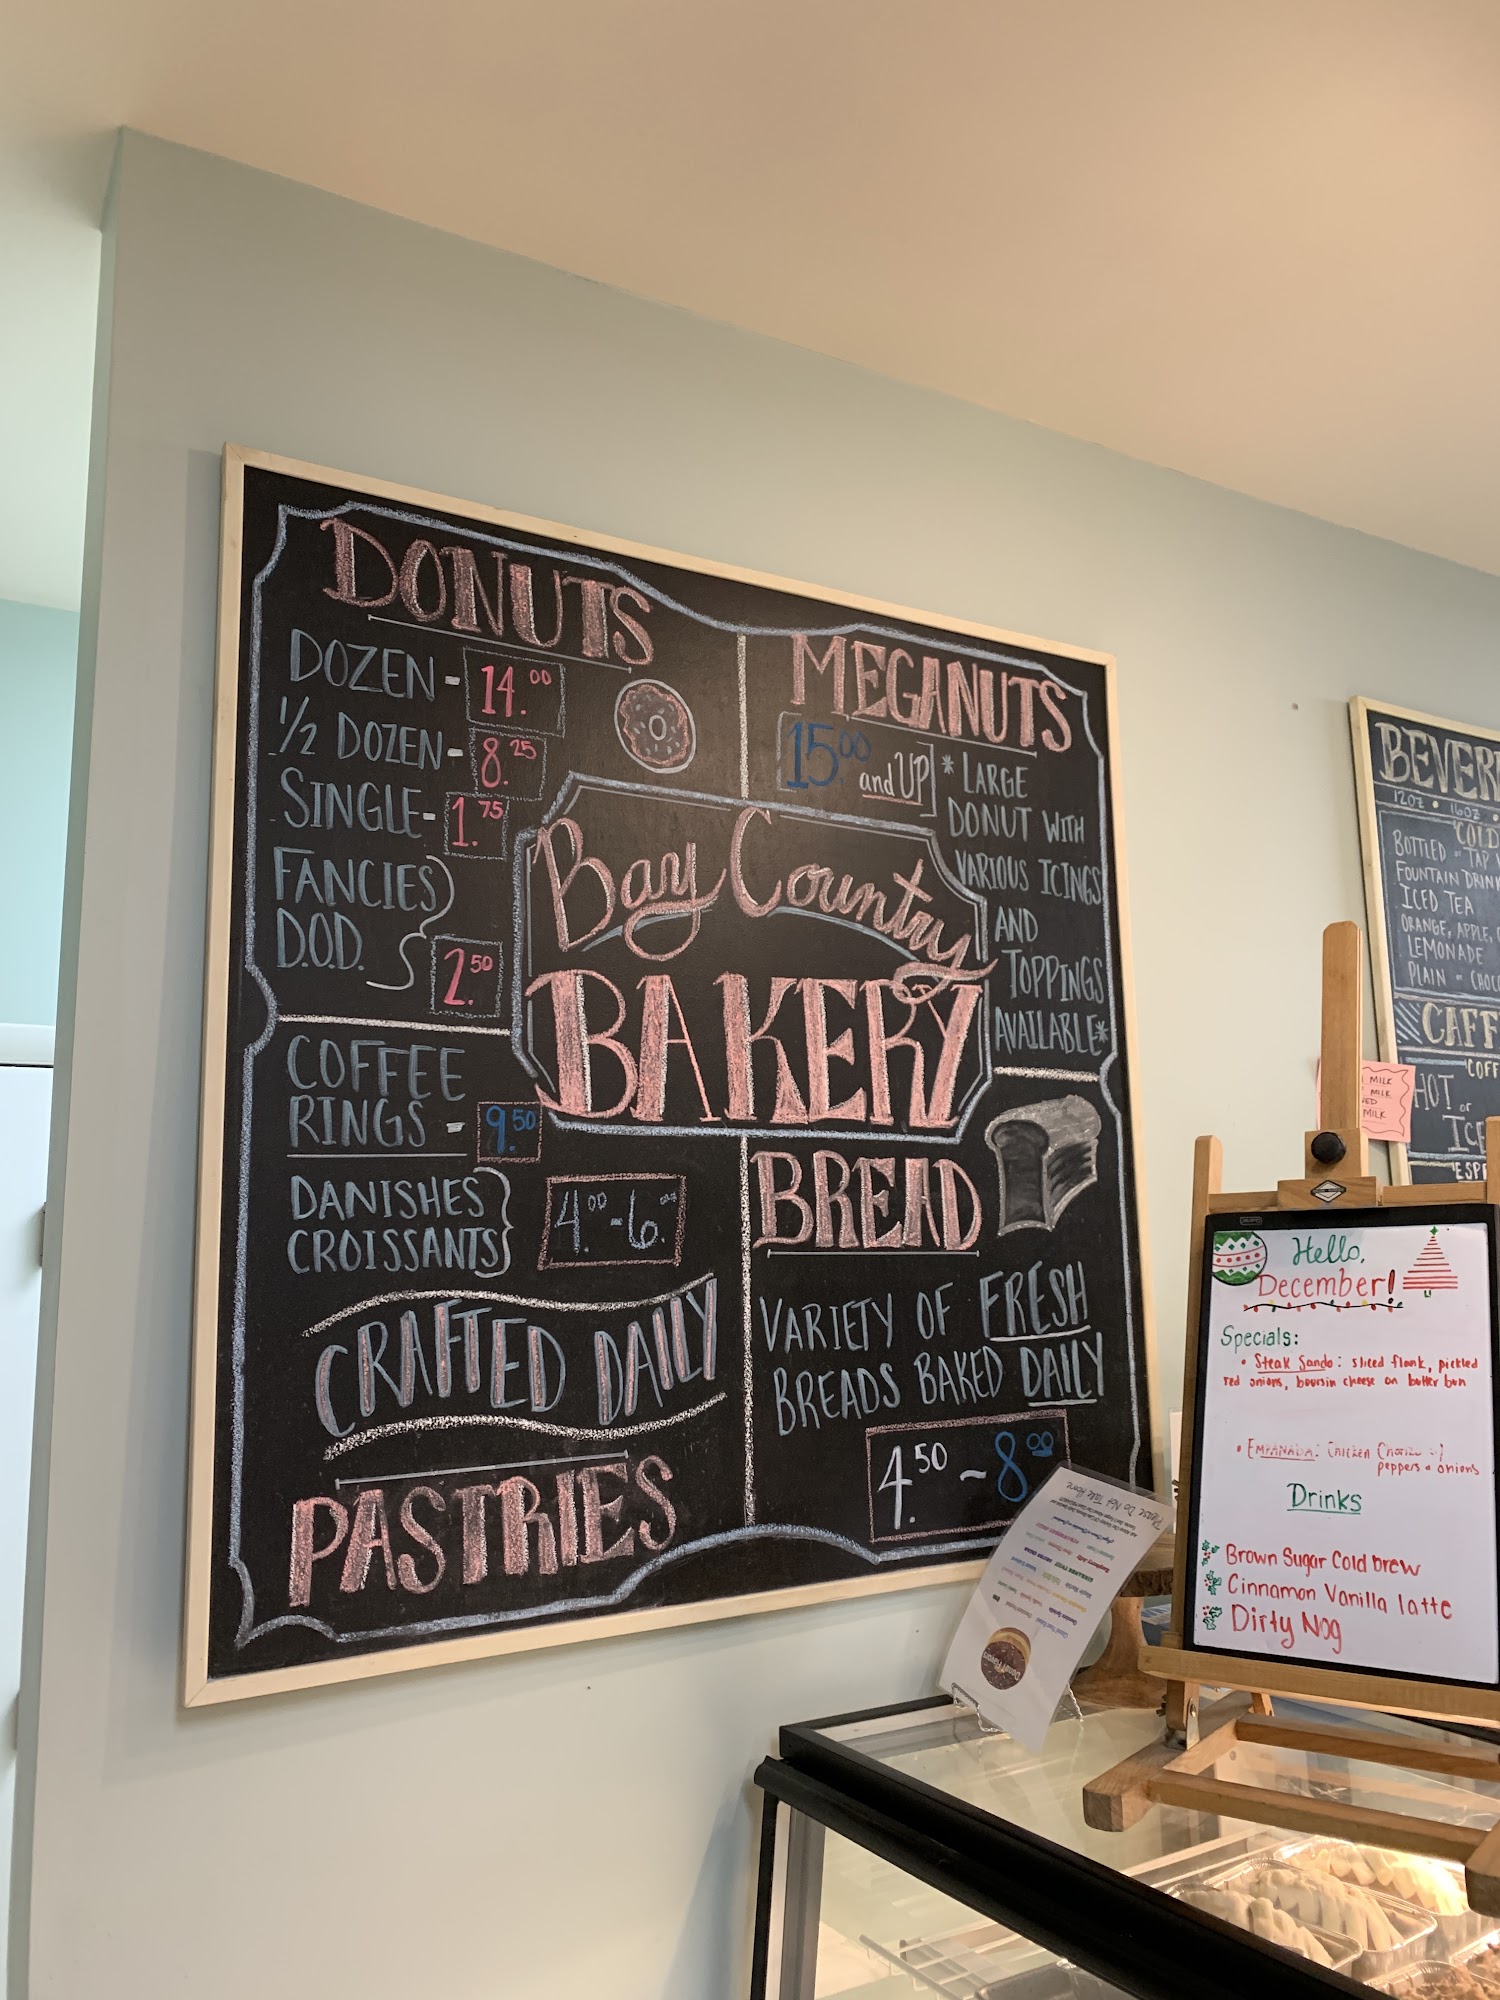 DONUTS
DOZEN - 14.00
1/2 DOZEN - 8.25
SINGLE - 1.75
FANCIES
D.O.D. 2.50
MEGANUTS
15.00 and UP
* LARGE
DONUT WITH
VARIOUS ICINGS
AND
TOPPINGS
AVAILABLE*
Bay Country
BAKERY
COFFEE
RINGS - 9.50
DANISHES
CROISSANTS
4.00 - 6.00
CRAFTED DAILY
PASTRIES
BREAD
VARIETY OF FRESH
BREADS BAKED DAILY
4.50 ~ 8.00
Please Do Not Take Home
Donut Flavors
BEVER
12oz • 16oz
COLD
BOTTLED or TAP
FOUNTAIN DRINK
ICED TEA
ORANGE, APPLE,
LEMONADE
PLAIN or CHOC
CAFF
COFF
HOT or
ICE
ESP
MILK
MILK
MILK
Hello,
December!
Specials:
• Steak Sando: sliced flank, pickled
red onions, boursin cheese on butter bun
• EMPANADA: Chicken
peppers + onions
Drinks
Brown Sugar Cold brew
Cinnamon Vanilla latte
Dirty Nog